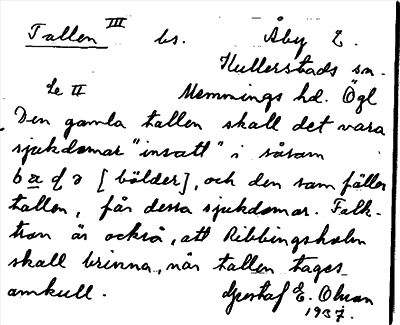 Tallen III bs. Åby E.
Kullerstads sn.
Se II Memmings hd. Ögl
Den gamla tallen skall det vara
sjukdomar "insatt" i såsom
[bölder], och den som fäller
tallen, får dessa sjukdomar. Folk-
tron är också, att Ribbingsholm
skall brinna, när tallen tages
omkull. Gustaf E. Olsson
1937.